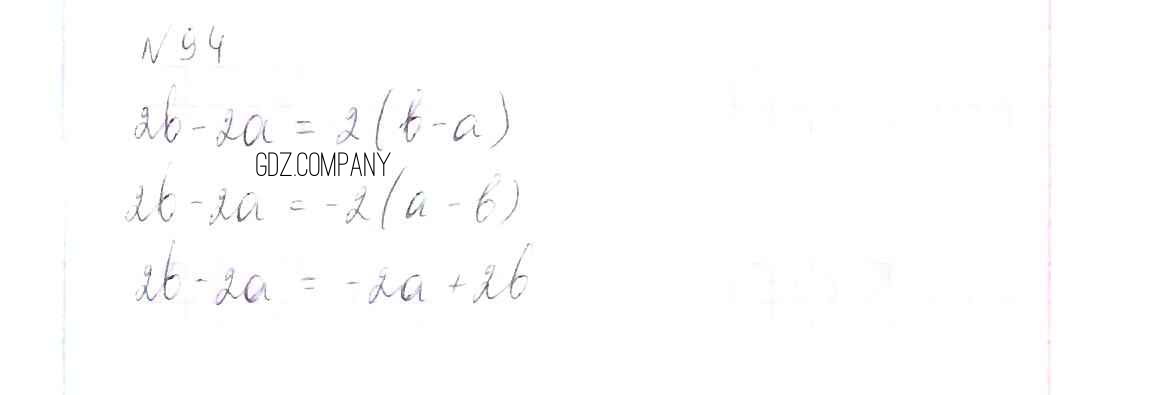 N 94
2b - 2a = 2 (b - a)
GDZ.COMPANY
2b - 2a = -2 (a - b)
2b - 2a = -2a + 2b